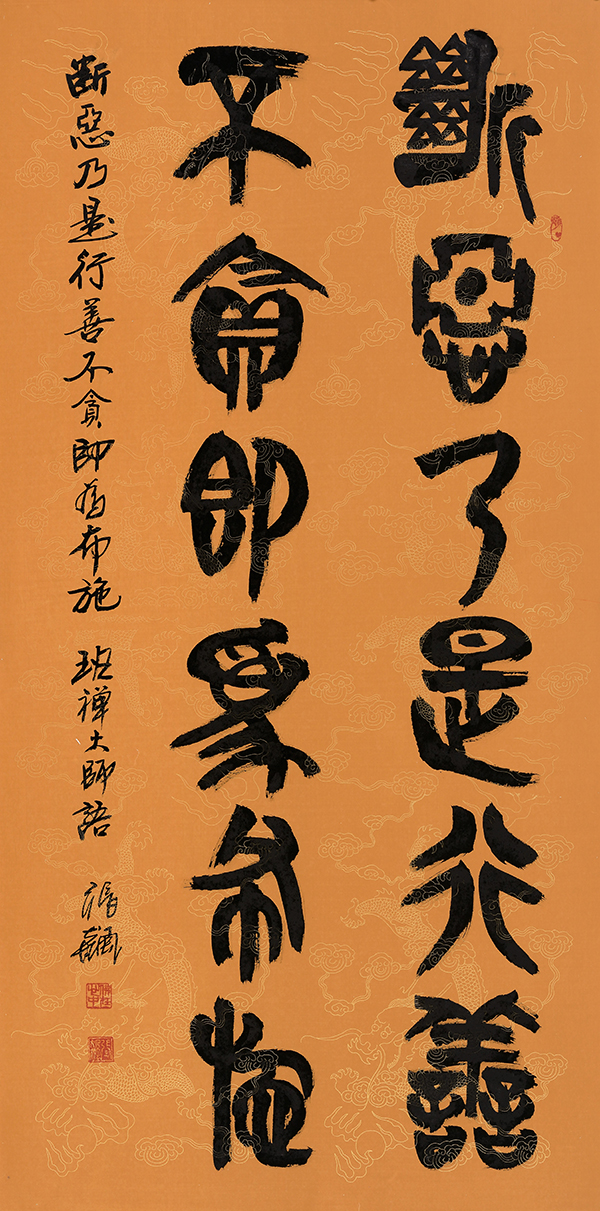 斷惡乃是行善
不貪即為布施
断惡乃是行善不貪即為布施 班禅大師語